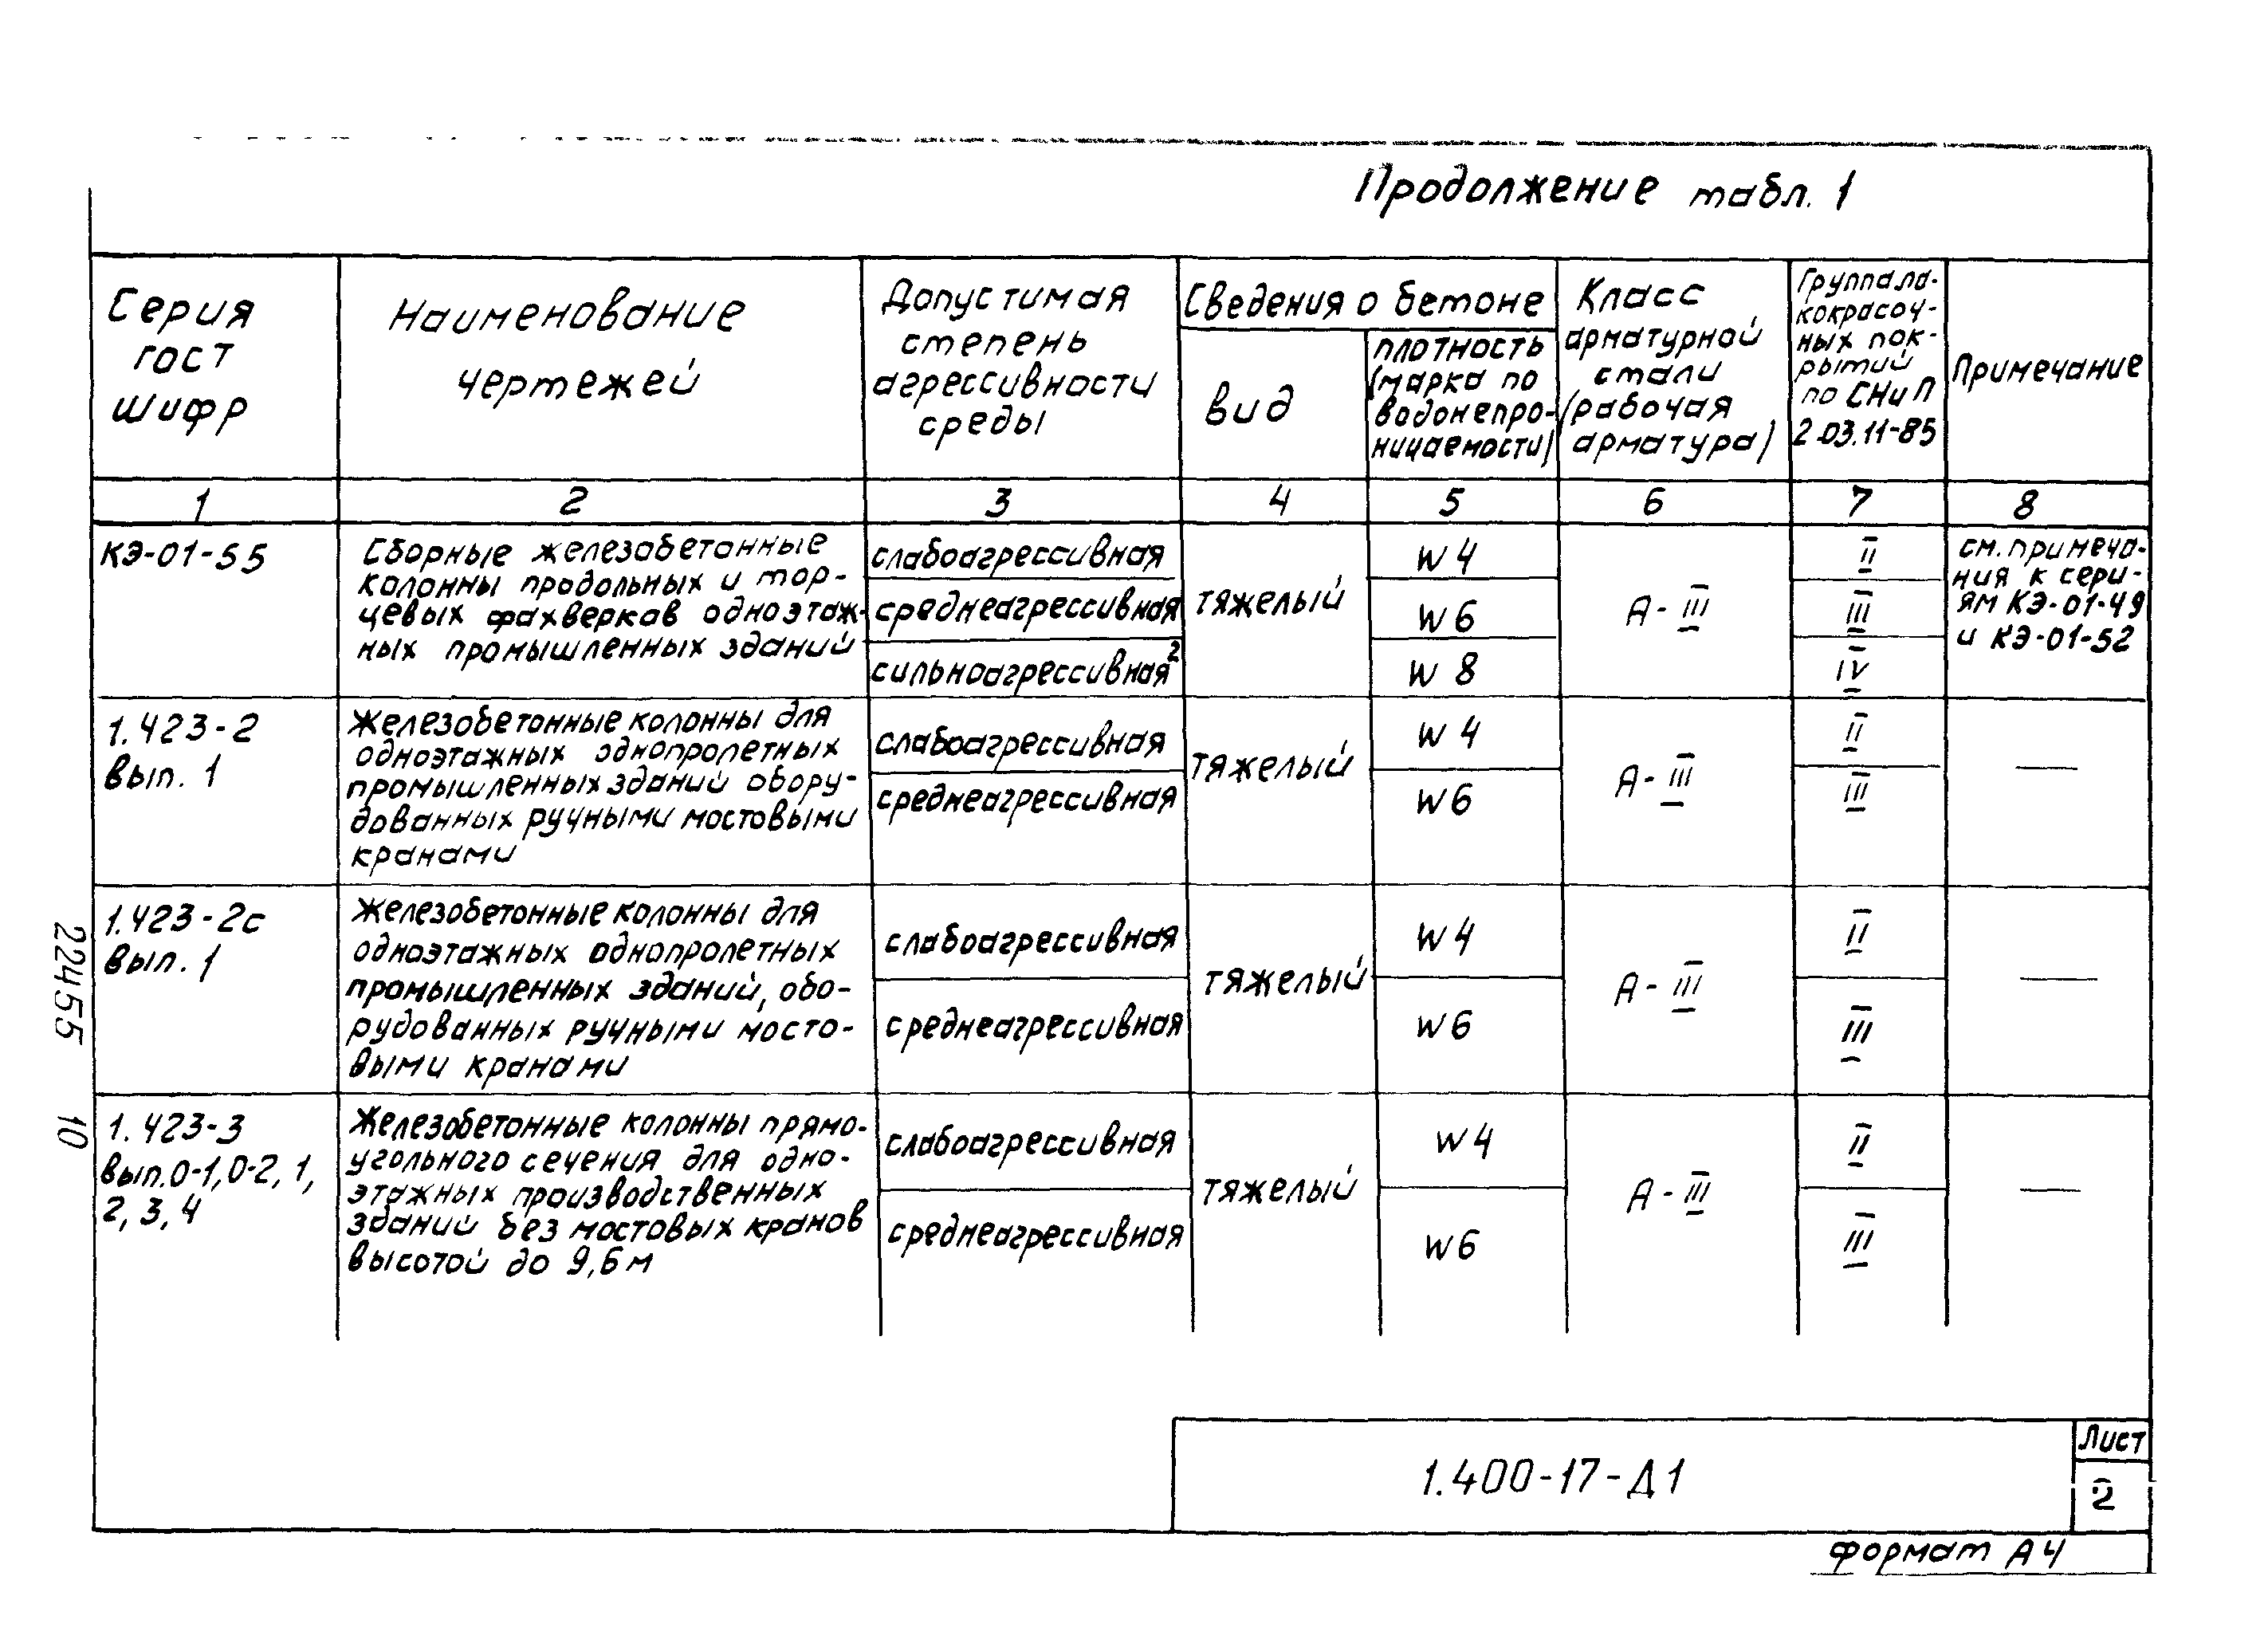 Продолжение табл. 1
Серия
гост
шифр
Наименование
чертежей
Допустимая
степень
агрессивности
среды
Сведения о бетоне
вид
плотность
(марка по
водонепро-
ницаемости)
Класс
арматурной
стали
(рабочая
арматура)
Группа ла-
кокрасоч-
ных пок-
рытий
по СНиП
2.03.11-85
Примечание
1
2
3
4
5
6
7
8
КЭ-01-55
Сборные железобетонные
колонны продольных и тор-
цевых фахверков одноэтаж-
ных промышленных зданий
слабоагрессивная
среднеагрессивная
сильноагрессивная²
тяжелый
W4
W6
W8
А-III
II
III
IV
см. примеча-
ния к сери-
ям КЭ-01-49
и КЭ-01-52
1.423-2
вып. 1
Железобетонные колонны для
одноэтажных однопролетных
промышленных зданий обору-
дованных ручными мостовыми
кранами
слабоагрессивная
среднеагрессивная
тяжелый
W4
W6
А-III
II
III
—
1.423-2с
вып. 1
Железобетонные колонны для
одноэтажных однопролетных
промышленных зданий, обо-
рудованных ручными мосто-
выми кранами
слабоагрессивная
среднеагрессивная
тяжелый
W4
W6
А-III
II
III
—
1.423-3
вып.0-1,0-2, 1,
2, 3, 4
Железобетонные колонны прямо-
угольного сечения для одно-
этажных производственных
зданий без мостовых кранов
высотой до 9,6 м
слабоагрессивная
среднеагрессивная
тяжелый
W4
W6
А-III
II
III
—
22455 10
1.400-17-Д1
Лист
2
формат А4